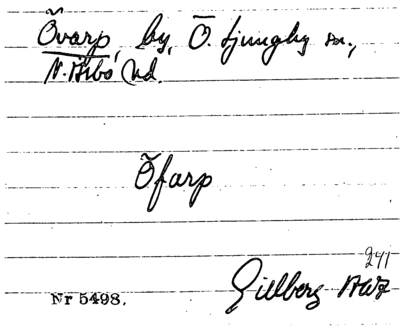 Övarp, by, Ö. Ljungby sn.,
N. Åsbo hd.
Öfarp
241
Gillberg
Nr 5498.